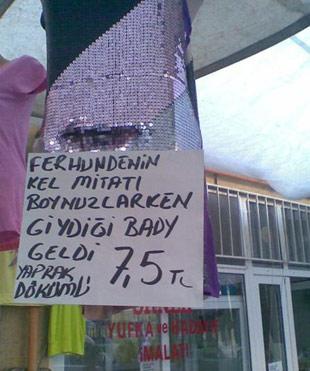 FERHUNDENİN
KEL MİTATI
BOYNUZLARKEN
GİYDİĞİ BADY
GELDİ
YAPRAK
DÖKÜMÜ 7,5 TL
YUFKA ve
İMALATI